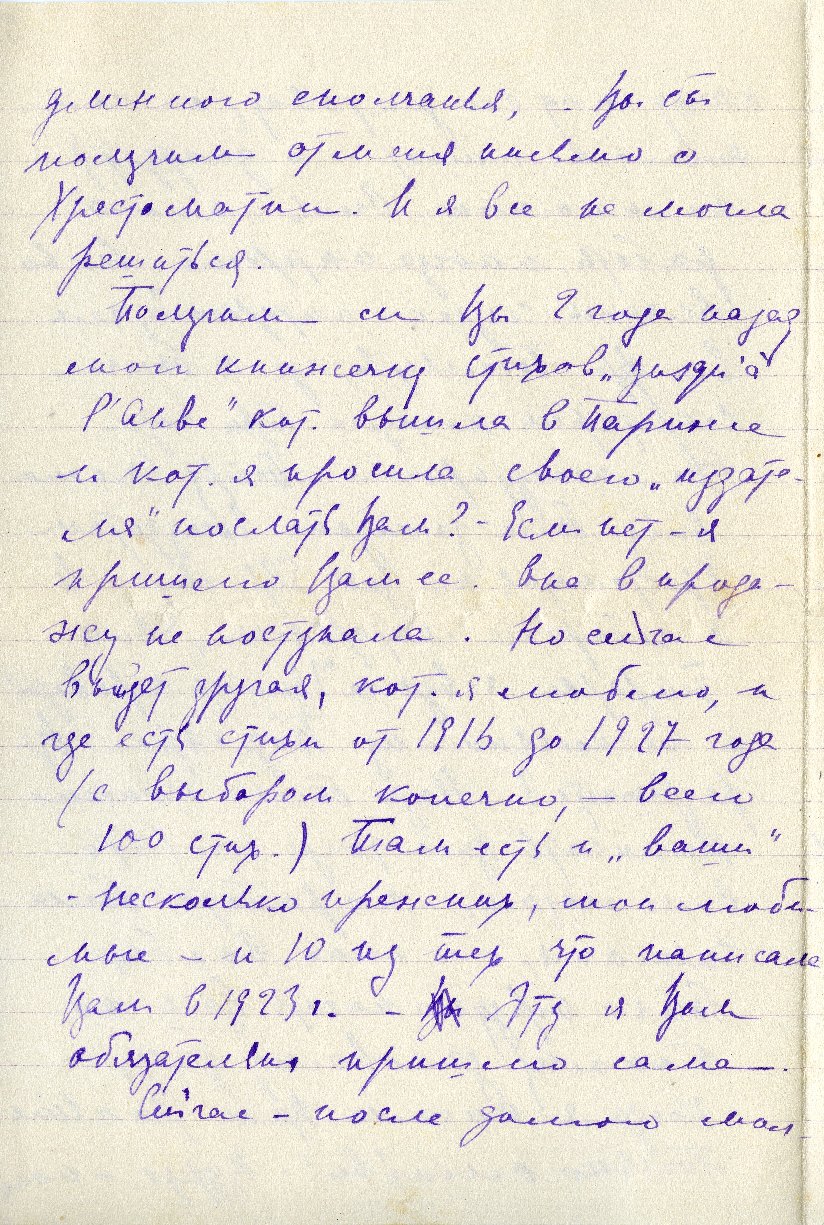 длинного смолчанья, – Вы бы
получили от меня письмо о
Хрестоматии. И я все не могла
решиться.
Получили – ли Вы 2 года назад
мою книжечку стихов „Jusqu'à
l'Aube" кот. вышла в Париже
и кот. я просила своего „издате-
ля" послать Вам? – Если нет – я
пришлю Вам ее. Она в прода-
жу не поступала. Но сейчас
выйдет другая, кот. я люблю, и
где есть стихи от 1916 до 1927 года
(с выбором конечно, – всего
100 стих.) Там есть и „ваши"
– несколько прежних, мои люби-
мые – и 10 из тех что написала
Вам в 1923 г. – Эту я Вам
обязательно пришлю сама –.
Сейчас – после долгого мол-